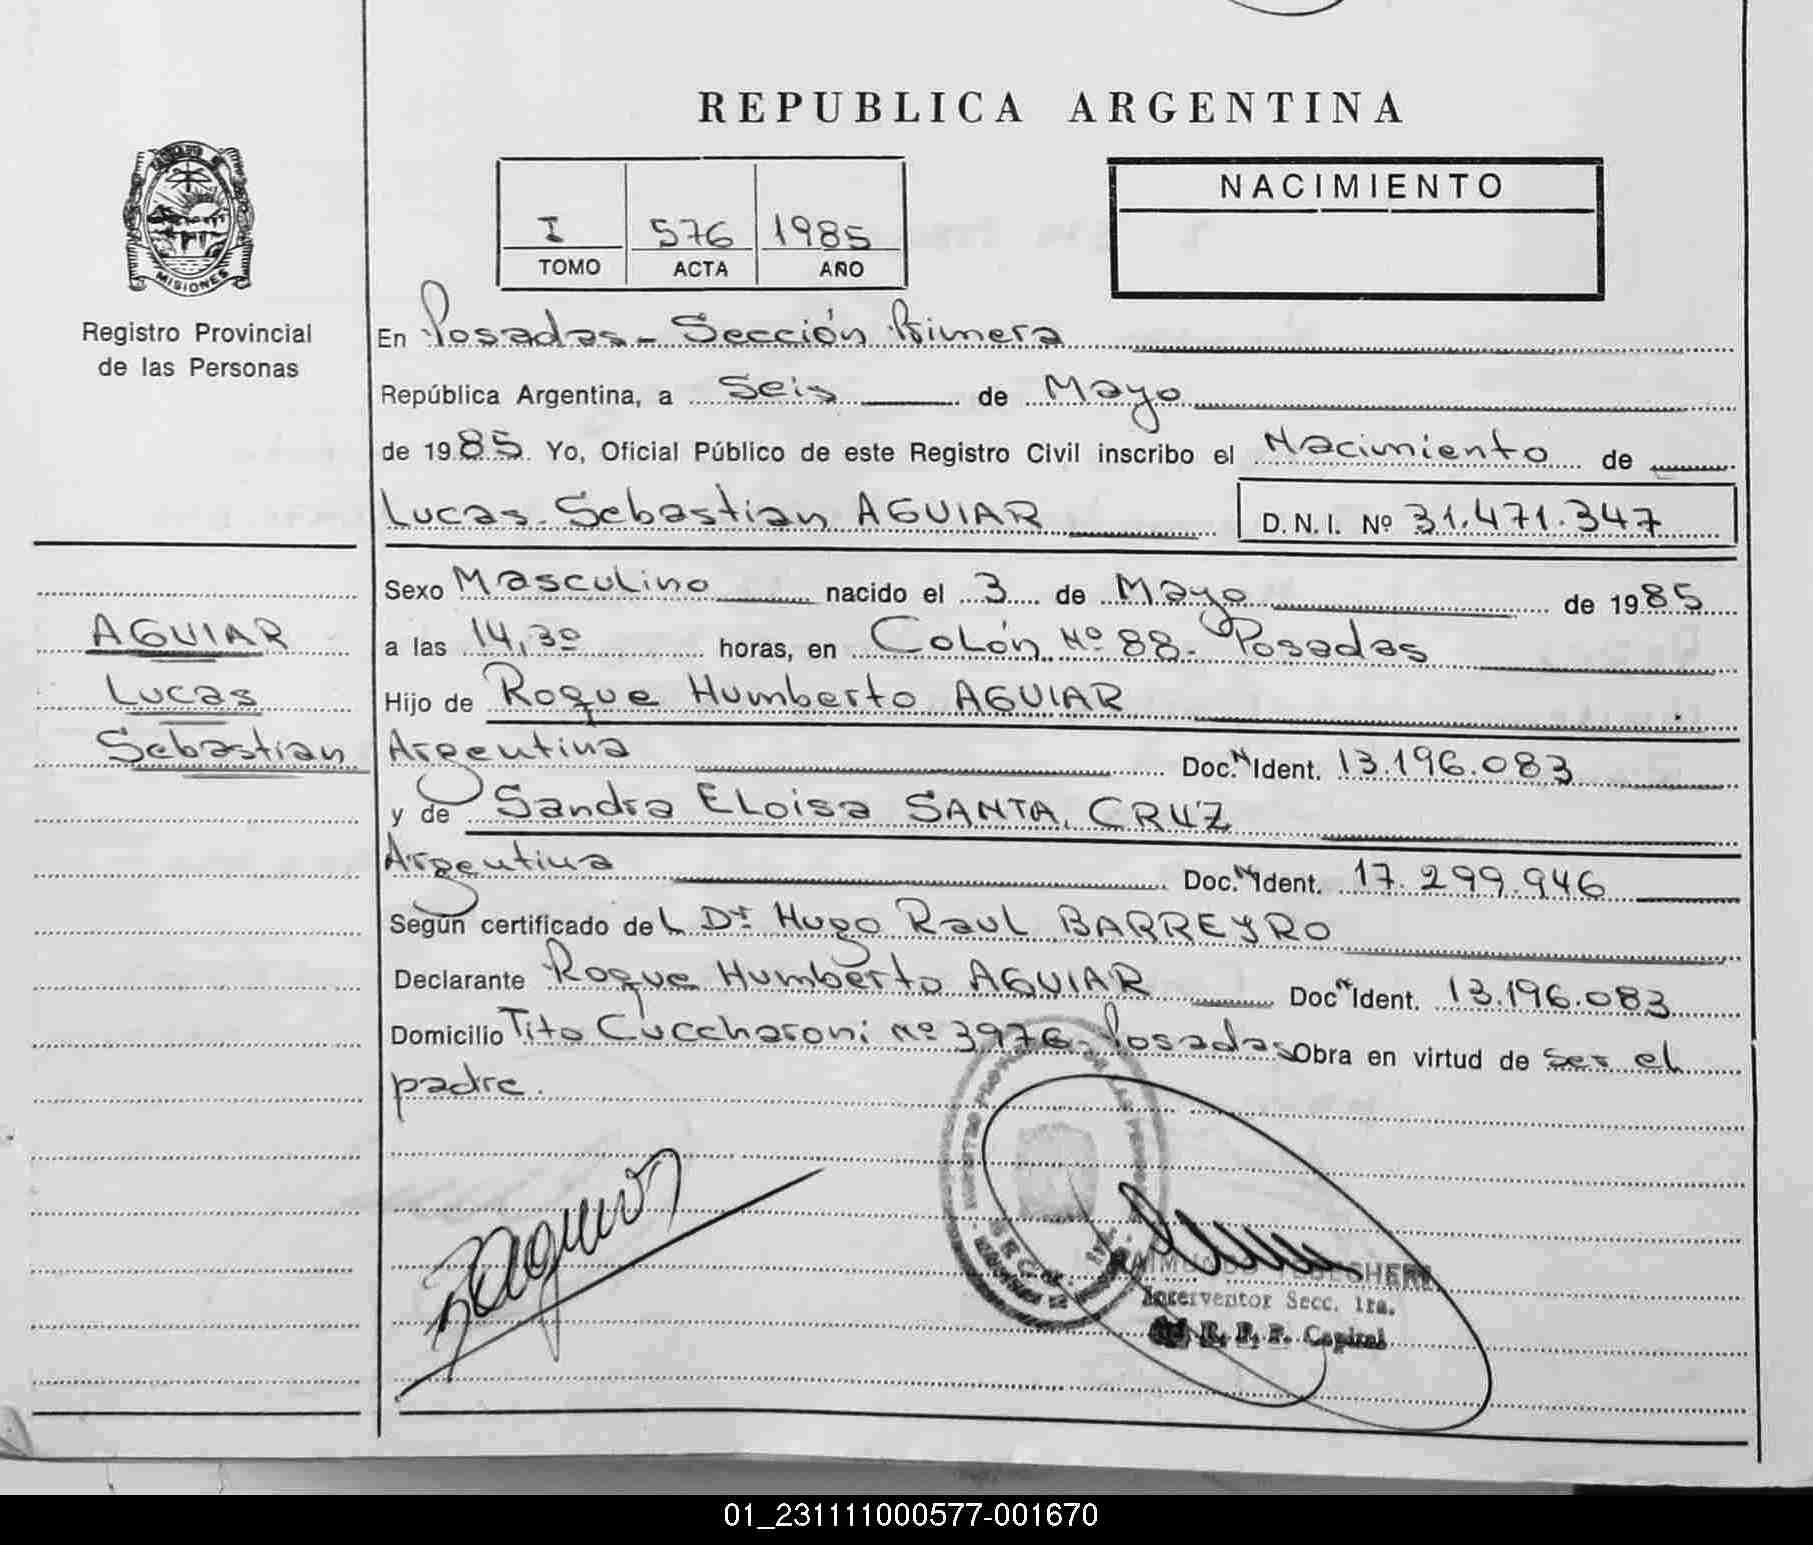 REPUBLICA ARGENTINA
MISIONES
Registro Provincial
de las Personas
I 576 1985
TOMO ACTA AÑO
NACIMIENTO
En Posadas - Sección Primera
República Argentina, a Seis de Mayo
de 1985 Yo, Oficial Público de este Registro Civil inscribo el Nacimiento de
Lucas Sebastian AGUIAR D.N.I. Nº 31.471.347
AGUIAR
Lucas
Sebastian
Sexo Masculino nacido el 3 de Mayo de 1985
a las 14,30 horas, en Colón Nº 88 - Posadas
Hijo de Roque Humberto AGUIAR
Argentina Doc. N Ident. 13.196.083
y de Sandra ELoisa SANTA CRUZ
Argentina Doc. N Ident. 17.299.946
Según certificado deL Dr Hugo Raul BARREYRO
Declarante Roque Humberto AGUIAR Doc N Ident. 13.196.083
Domicilio Tito Cuccharoni Nº 3976 - Posadas Obra en virtud de ser el
padre.
Interventor Secc. 1ra.
R. P. P. Capital
01_231111000577-001670